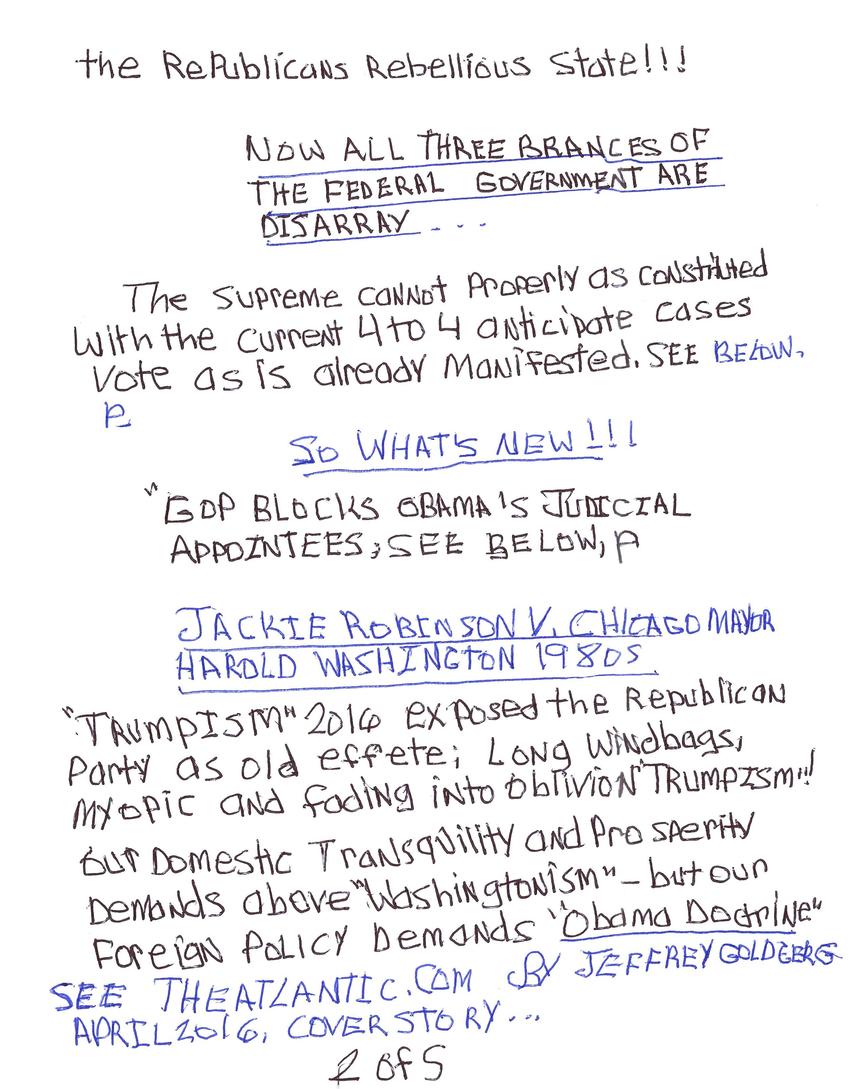 the Republicans Rebellious State!!!
NOW ALL THREE BRANCES OF
THE FEDERAL GOVERNMENT ARE
DISARRAY . . .
The Supreme cannot Properly as constituted
With the current 4 to 4 anticipate cases
Vote as is already Manifested. SEE BELOW,
P.
SO WHAT'S NEW!!!
"GOP BLOCKS OBAMA'S JUDICIAL
APPOINTEES; SEE BELOW, P
JACKIE ROBINSON V. CHICAGO MAYOR
HAROLD WASHINGTON 1980S
"TRUMPISM" 2016 exposed the Republican
Party as old effete; Long Windbags,
Myopic and fading into oblivion "TRUMPISM"!
but Domestic Transquility and Prosperity
Demands above "Washingtonism" - but our
Foreign POLICY Demands "Obama Doctrine"
SEE THEATLANTIC.COM BY JEFFREY GOLDBERG
APRIL 2016, COVER STORY...
2 of 5